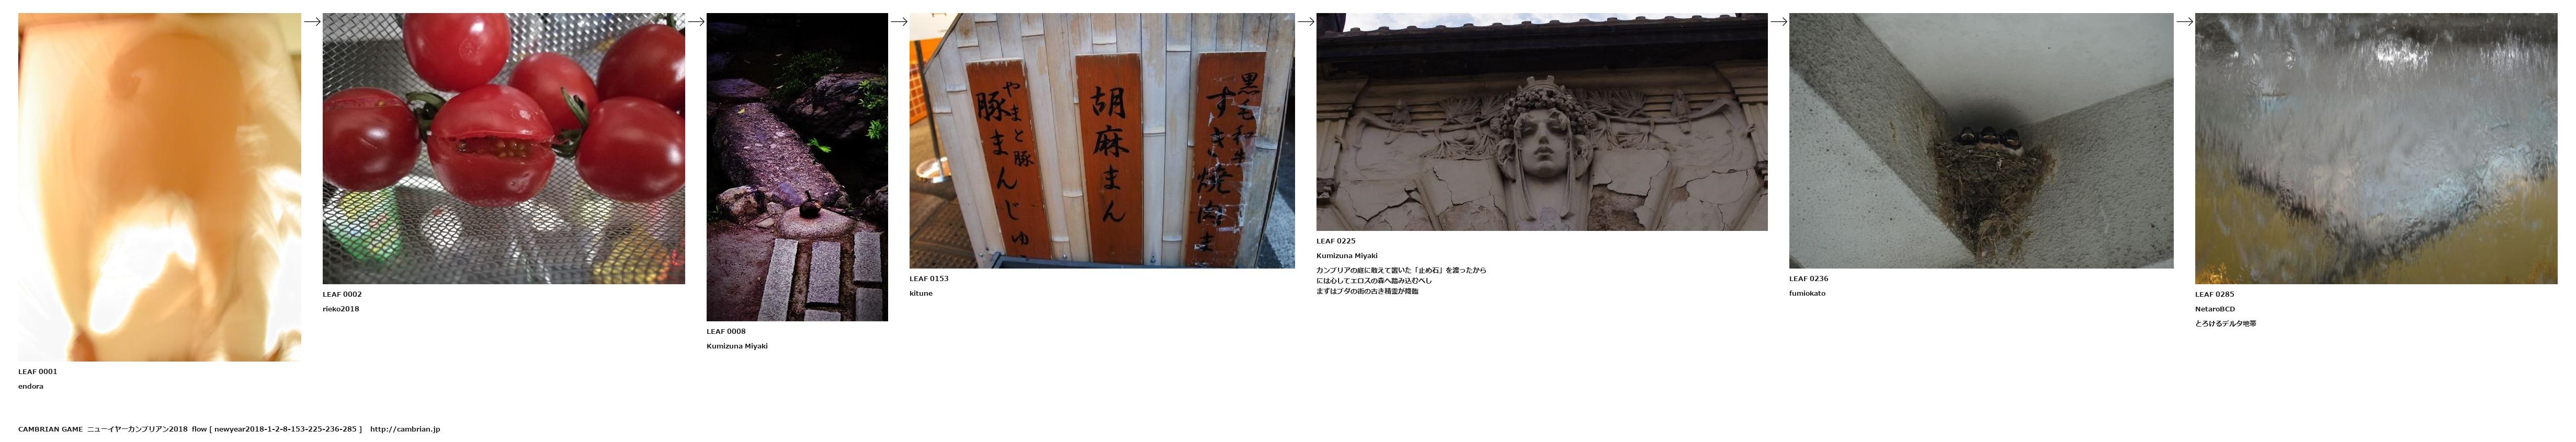 やまと豚
豚まんじゅ
胡麻まん
黒毛和牛
すき焼肉ま
LEAF 0001
endora
LEAF 0002
rieko2018
LEAF 0008
Kumizuna Miyaki
LEAF 0153
kitune
LEAF 0225
Kumizuna Miyaki
カンブリアの庭に敢えて置いた「止め石」を渡ったから
には心してエロスの森へ踏み込むべし
まずはブダの街の古き精霊が降臨
LEAF 0236
fumiokato
LEAF 0285
NetaroBCD
とろけるデルタ地帯
CAMBRIAN GAME ニューイヤーカンブリアン2018 flow [ newyear2018-1-2-8-153-225-236-285 ] http://cambrian.jp